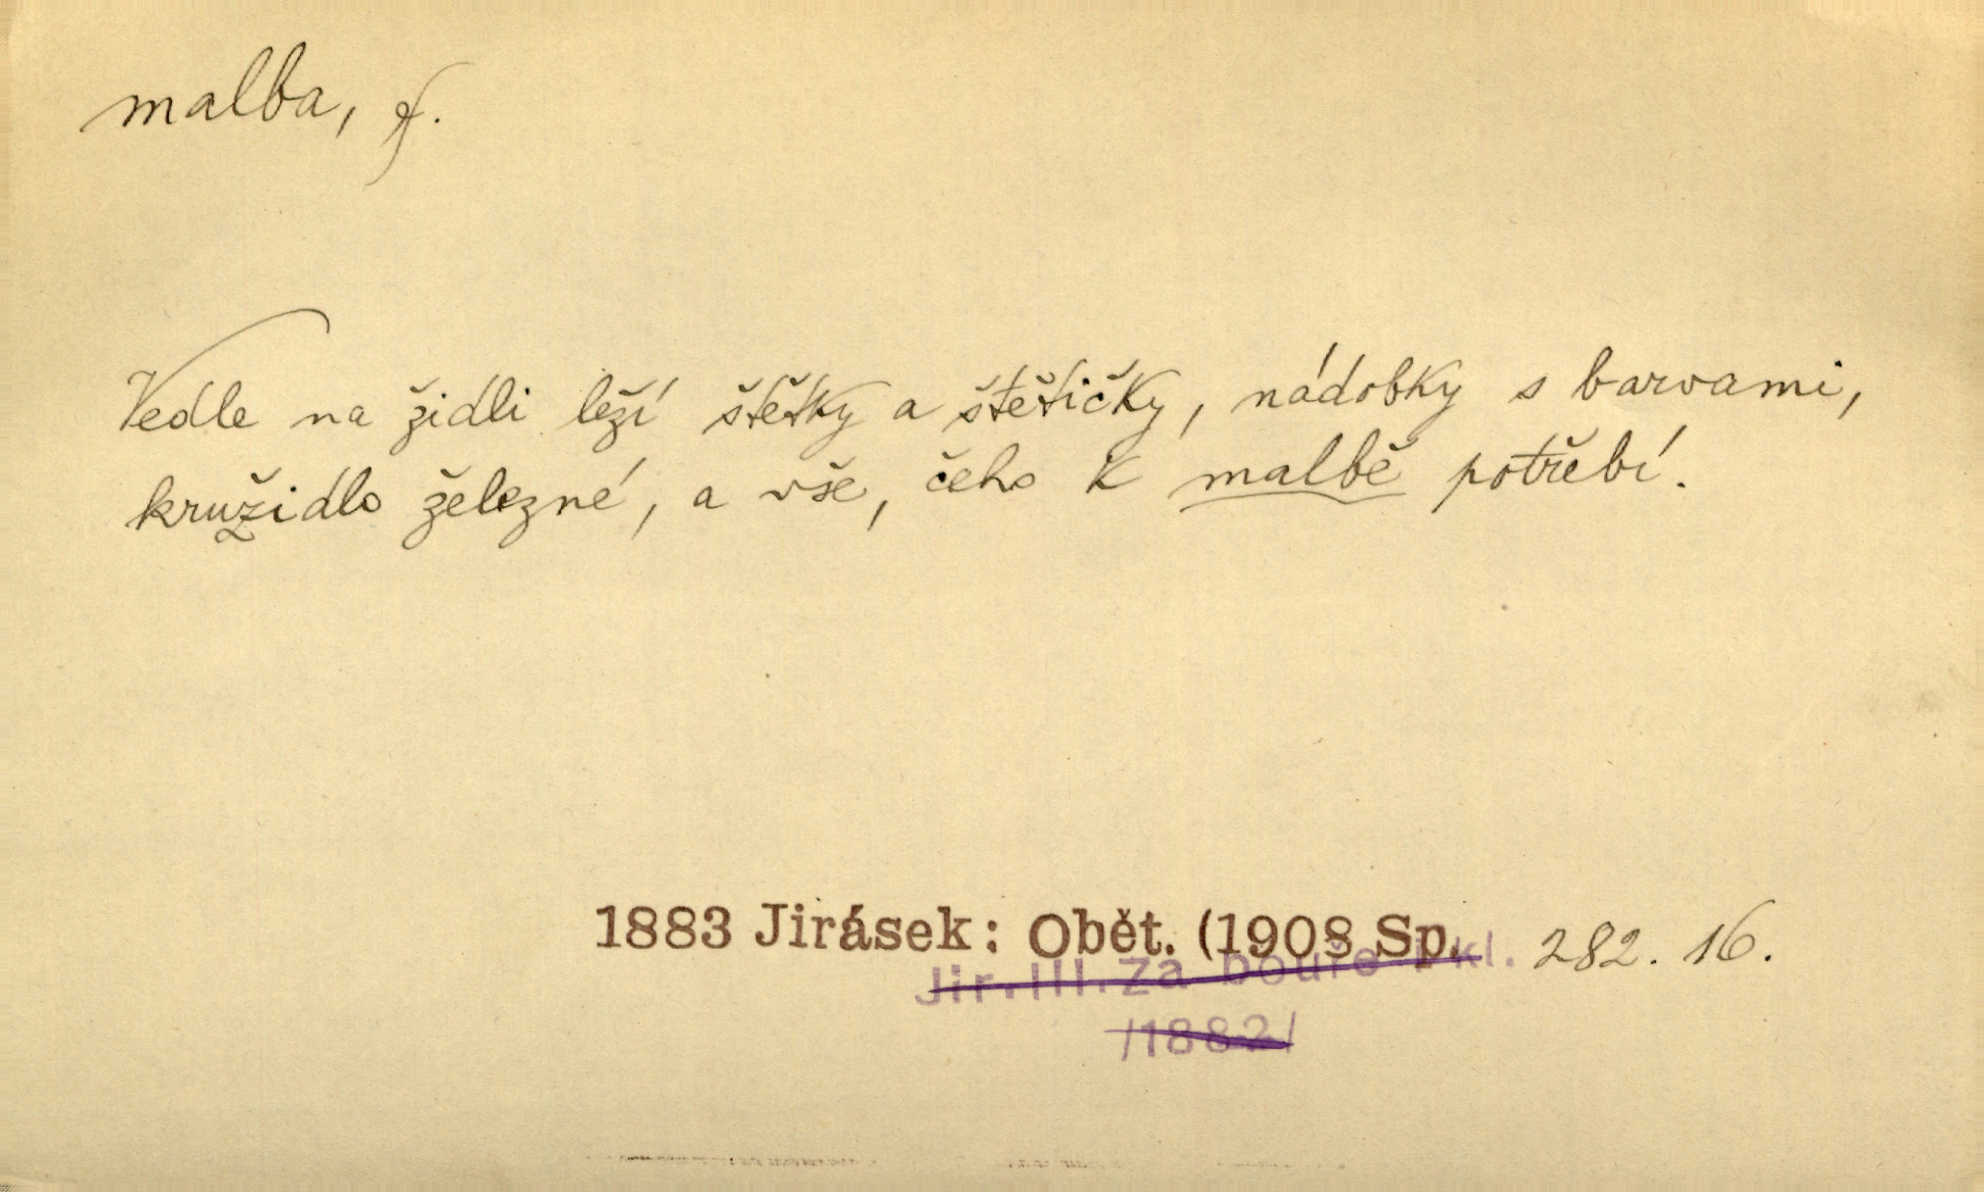 malba, f.
Vedle na židli leží štětky a štětičky, nádobky s barvami,
kružidlo železné, a vše, čeho k malbě potřebí.
1883 Jirásek: Obět. (1908 Sp. 282. 16.
Jir.III.Za bouře i kl.
/1882/